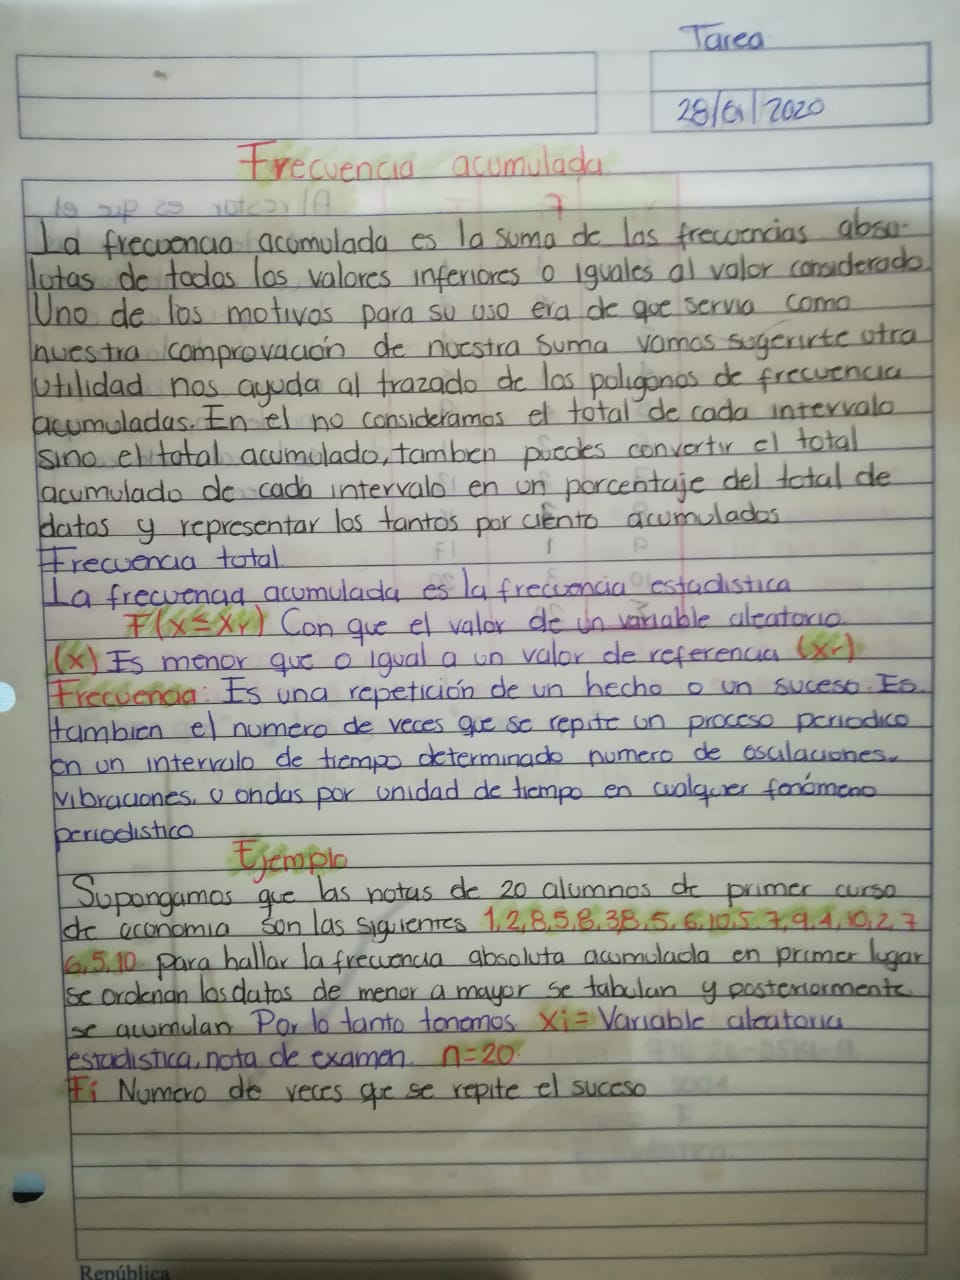 Tarea
28/01/2020
Frecuencia acumulada
La frecuencia acumulada es la suma de las frecuencias abso-
lutas de todos los valores inferiores o iguales al valor considerado.
Uno de los motivos para su uso era de que servia como
nuestra comprovación de nuestra suma vamos sugerirte otra
utilidad nos ayuda al trazado de los poligonos de frecuencia
acumuladas. En el no consideramos el total de cada intervalo
sino el total acumulado, tambien puedes convertir el total
acumulado de cada intervalo en un porcentaje del total de
datos y representar los tantos por ciento acumulados
Frecuencia total.
La frecuencia acumulada es la frecuencia estadistica
F(X≤Xr) Con que el valor de un variable aleatorio
(x) Es menor que o igual a un valor de referencia (xr)
Frecuencia: Es una repetición de un hecho o un suceso. Es
tambien el numero de veces que se repite un proceso periodico
en un intervalo de tiempo determinado numero de osculaciones,
vibraciones, u ondas por unidad de tiempo en cualquer fenómeno
periodistico
Ejemplo
Supongamos que las notas de 20 alumnos de primer curso
de economia son las siguientes 1,2,8,5,8,3,8,5,6,10,5,7,9,4,10,2,7
6,5,10 para hallar la frecuencia absoluta acumulada en primer lugar
se ordenan los datos de menor a mayor se tabulan y posteriormente
se acumulan Por lo tanto tenemos xi= Variable aleatoria
estadistica, nota de examen. n=20.
Fi Numero de veces que se repite el suceso
República